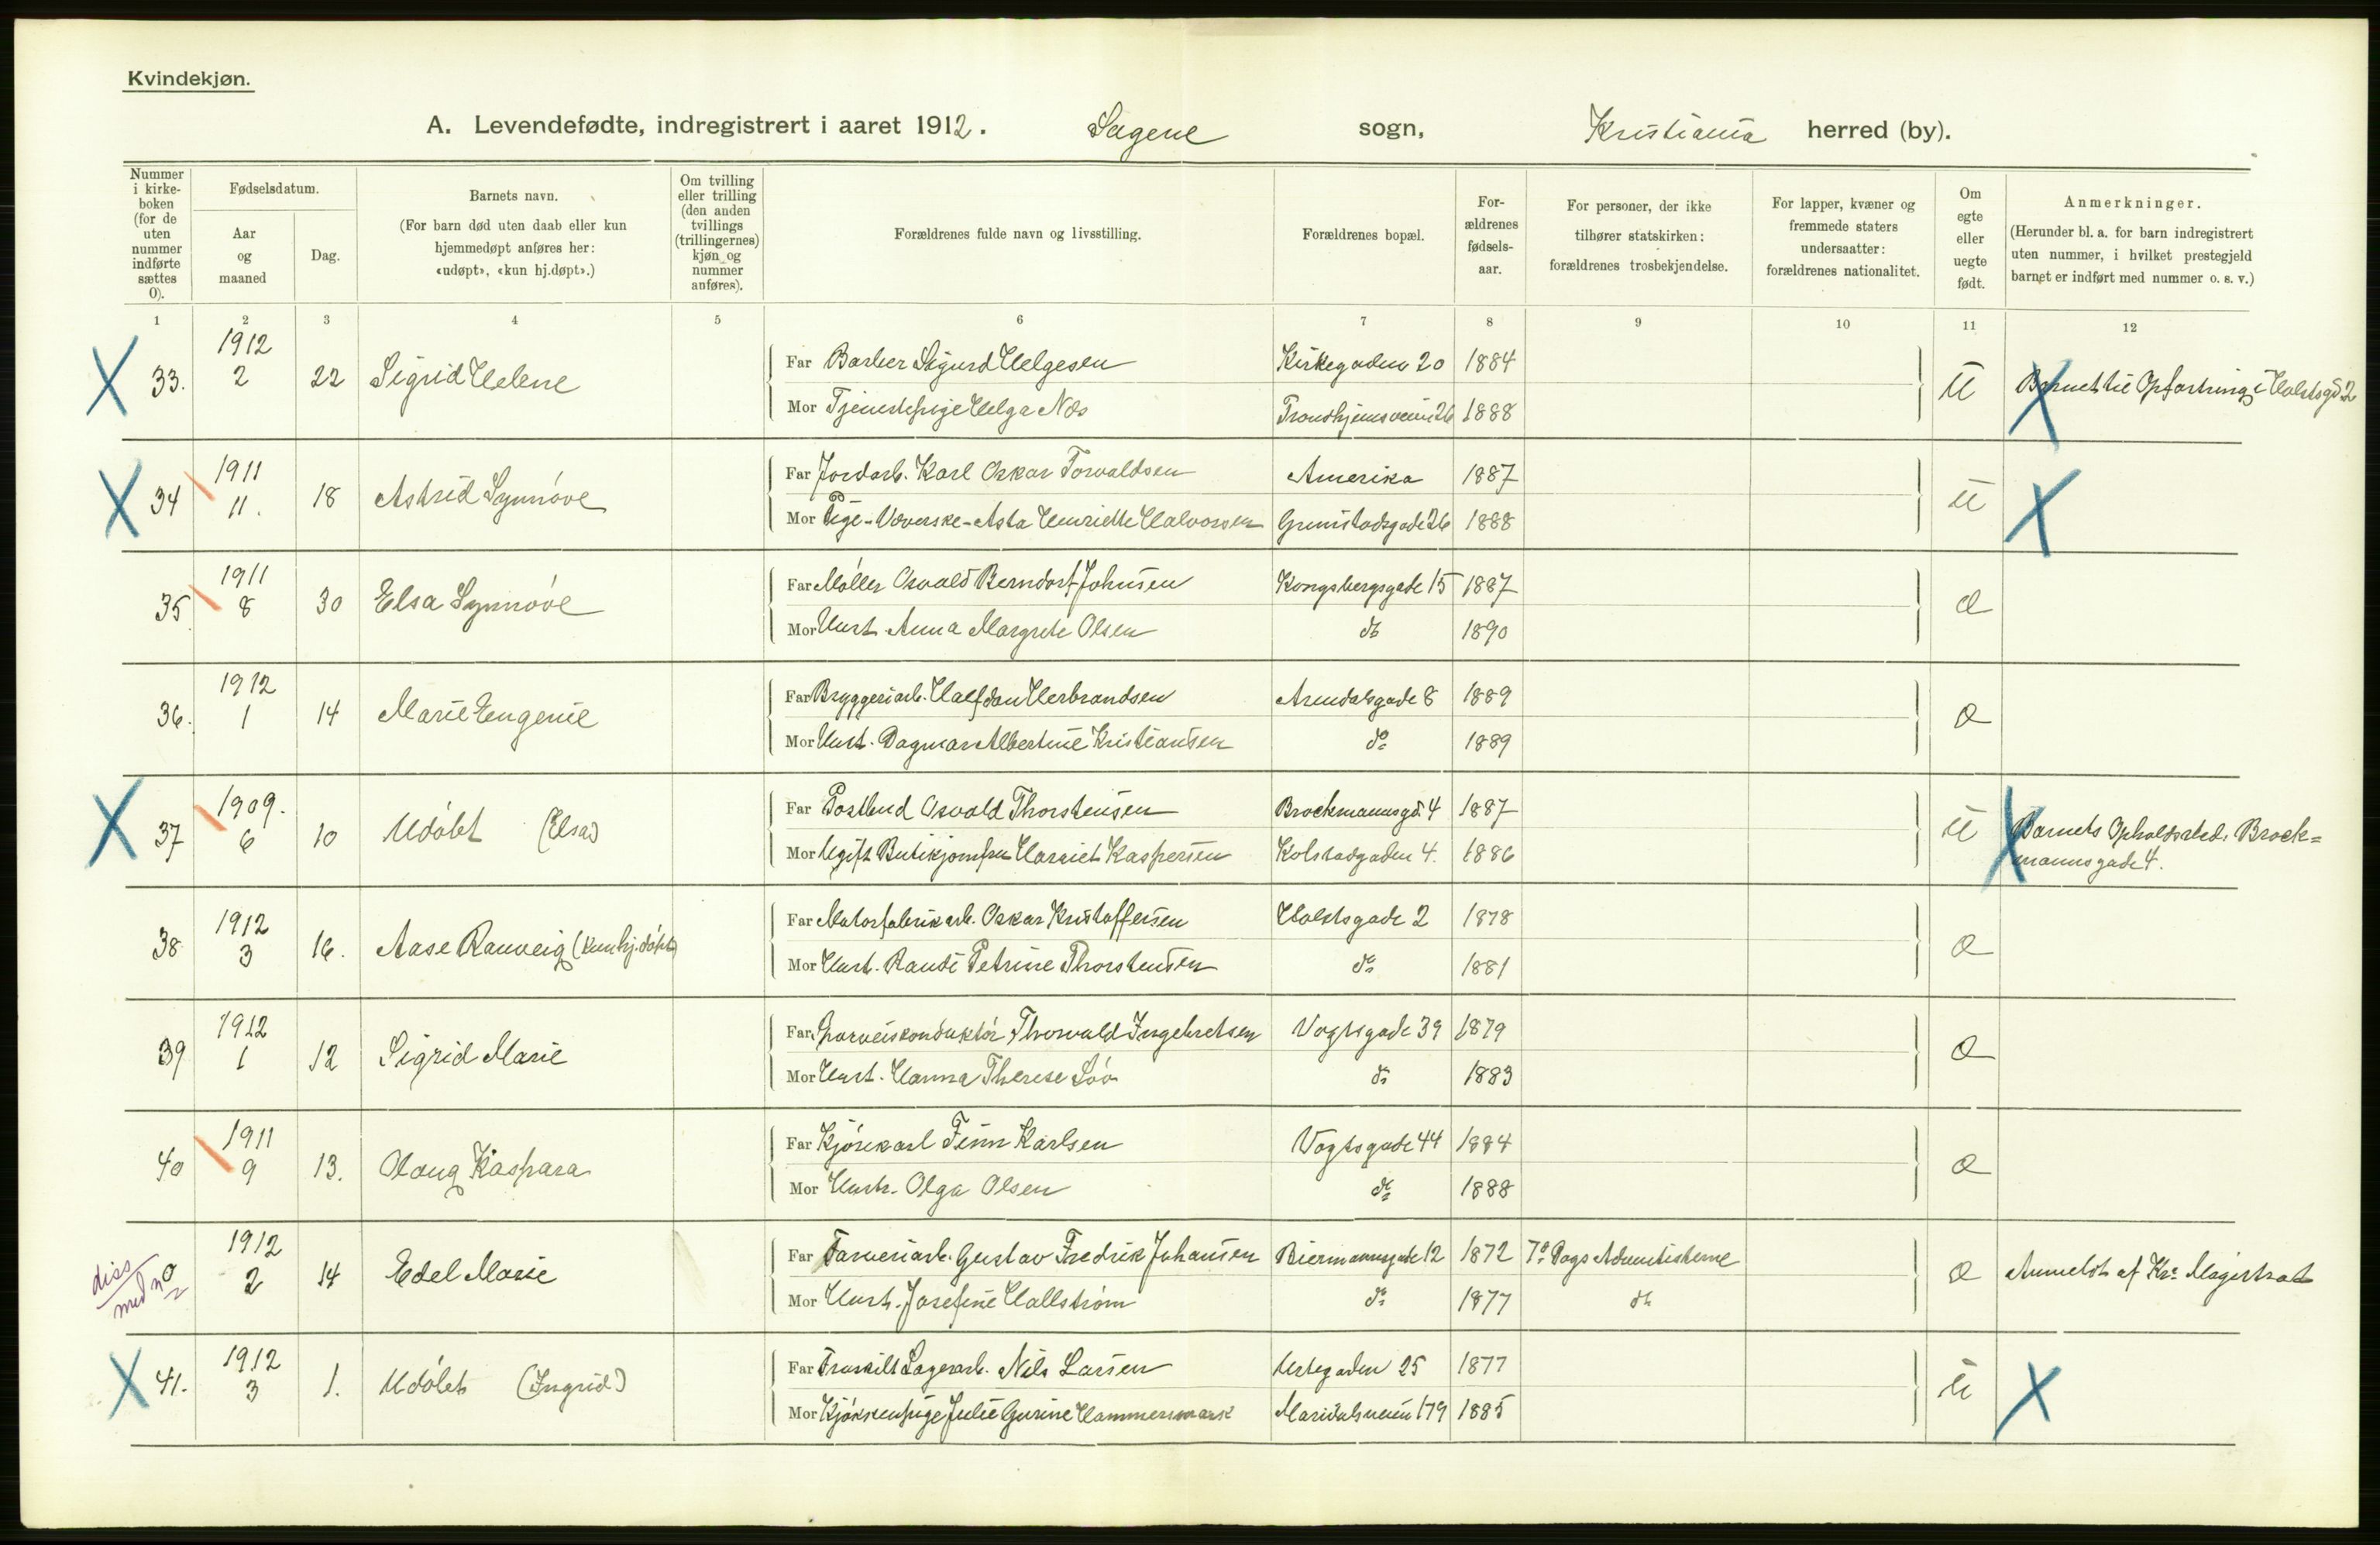 Kvindekjøn.
A. Levendefødte, indregistrert i aaret 1912. Sagene sogn, Kristiania herred (by).
Nummer i kirkeboken (for de uten nummer indførte sættes 0).
Fødselsdatum.
Aar og maaned
Dag.
Barnets navn.
(For barn død uten daab eller kun hjemmedøpt anføres her: «udøpt», «kun hj.døpt».)
Om tvilling eller trilling (den anden tvillings (trillingernes) kjøn og nummer anføres).
Forældrenes fulde navn og livsstilling.
Forældrenes bopæl.
For-ældrenes fødsels-aar.
For personer, der ikke tilhører statskirken: forældrenes trosbekjendelse.
For lapper, kvæner og fremmede staters undersaatter: forældrenes nationalitet.
Om egte eller uegte født.
Anmerkninger.
(Herunder bl. a. for barn indregistrert uten nummer, i hvilket prestegjeld barnet er indført med nummer o. s. v.)
1 2 3 4 5 6 7 8 9 10 11 12
X 33. 1912 2 22 Sigrid Helene
Far Barber Sigurd Helgesen Kirkegaden 20 1884
Mor Tjenestepige Helga Næs Trondhjemsveien 26 1888
U Barnet til Opfostring i Holstsgd. 2
X 34 1911 11. 18 Astrid Synnöve
Far Jordarb. Karl Oskar Torvaldsen Amerika 1887
Mor Pige - Væverske - Asta Henriette Halvorsen Grimstadsgade 26 1888
U X
35 1911 8 30 Elsa Synnöve
Far Möller Osvald Berndorf Johnsen Kongsbergsgade 15 1887
Mor Hust. Anna Margrete Olsen do 1890
Æ
36. 1912 1 14 Marie Eugenie
Far Bryggeriarb. Halfdan Herbrandsen Arendalsgade 8 1889
Mor Hust. Dagmar Albertine Kristiansen do 1889
Æ
X 37 1909. 6 10 Udöbt (Elsa)
Far Postbud Osvald Thorstensen Brochmannsgd. 4 1887
Mor Ugift Butikjomfru Harriet Kaspersen Kolstadgaden 4. 1886
U Barnets Opholdssted: Brock=
mannsgade 4.
38 1912 3 16. Aase Ranveig (Kun hj. döbt)
Far Motorfabrikarb. Oskar Kristoffersen Holstsgade 2 1878
Mor Hust. Randi Petrine Thorstensen do 1881
Æ
39 1912 1 12 Sigrid Marie
Far Sporveiskonduktör Thorvald Ingebretsen Vogtsgade 39 1879
Mor Hust. Hanna Therese Löö do 1883
Æ
40 1911 9 13. Olaug Kaspara
Far Kjörekarl Finn Karlsen Vogtsgade 44 1884
Mor Hustr. Olga Olsen do 1888
Æ
diss
med no
0 1912 2 14 Edel Marie
Far Farveriarb. Gustav Fredrik Johansen Biermannsgade 12 1872 7de Dags Adventisterne
Mor Hustr. Josefine Hallström do 1877 do
Æ Anmeldt af Kra. Magistrat
X 41. 1912 3 1. Udöbt (Ingrid)
Far Fraskilt Lagerarb. Nils Larsen Urtegaden 25 1877
Mor Kjökkenpige Julie Gurine Hammersmark Maridalsveien 179 1885
U X